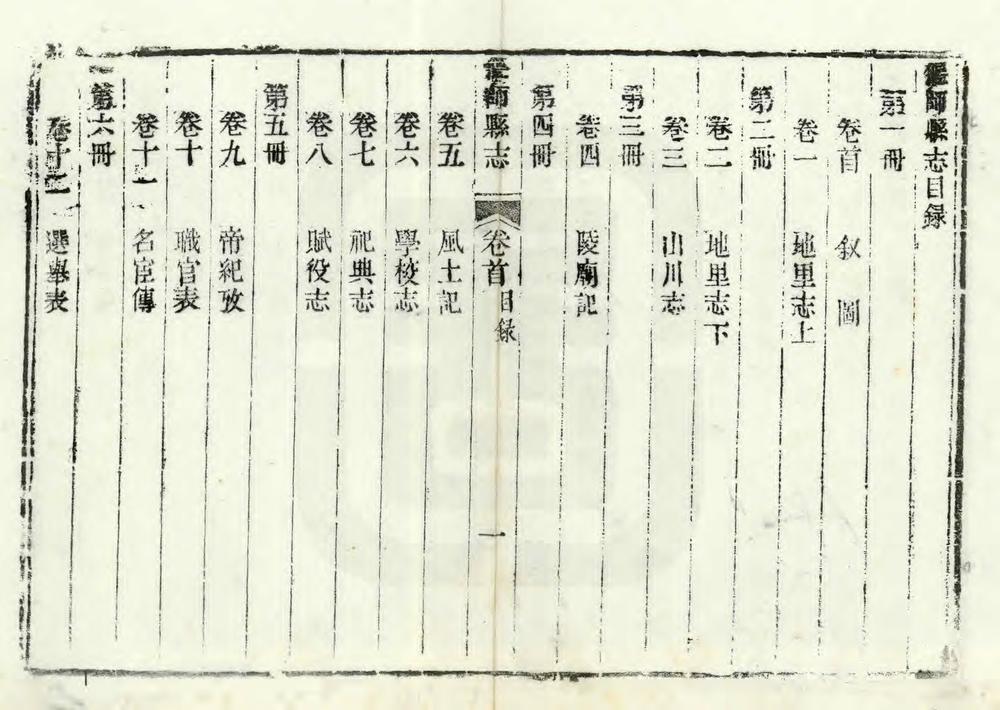 偃師縣志目録
第一冊
卷首　叙　圖
卷一　地里志上
第二冊
卷二　地里志下
卷三　山川志
第三冊
卷四　陵廟記
第四冊
偃師縣志　卷首　目録　一
卷五　風土記
卷六　學校志
卷七　祀典志
卷八　賦役志
第五冊
卷九　帝紀攷
卷十　職官表
卷十一　名宦傳
第六冊
卷十二　選舉表